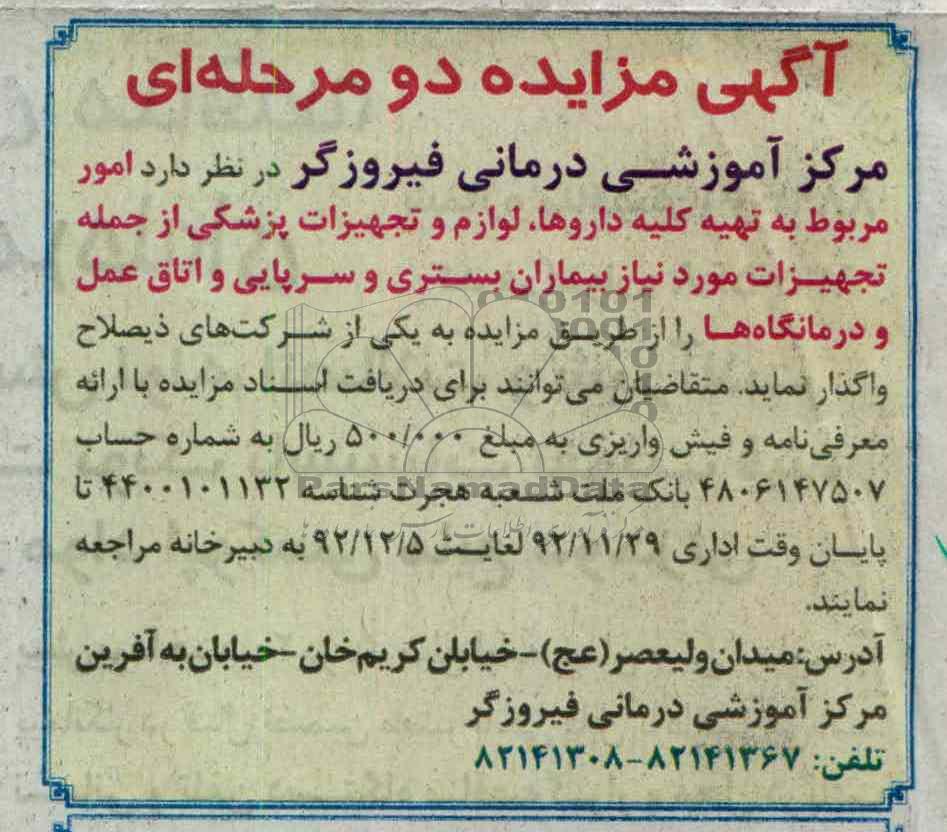 آگهی مزایده دو مرحله‌ای
مرکز آموزشی درمانی فیروزگر در نظر دارد امور
مربوط به تهیه کلیه داروها، لوازم و تجهیزات پزشکی از جمله
تجهیزات مورد نیاز بیماران بستری و سرپایی و اتاق عمل
و درمانگاه‌ها را از طریق مزایده به یکی از شرکت‌های ذیصلاح
واگذار نماید. متقاضیان می‌توانند برای دریافت اسناد مزایده با ارائه
معرفی‌نامه و فیش واریزی به مبلغ ۵۰۰/۰۰۰ ریال به شماره حساب
۴۸۰۶۱۴۷۵۰۷ بانک ملت شعبه هجرت شناسه ۴۴۰۰۱۰۱۱۳۲ تا
پایان وقت اداری ۹۲/۱۱/۲۹ لغایت ۹۲/۱۲/۵ به دبیرخانه مراجعه
نمایند.
آدرس:میدان ولیعصر(عج)-خیابلن کریم‌خان-خیابان به آفرین
مرکز آموزشی درمانی فیروزگر
تلفن: ۸۲۱۴۱۳۶۷-۸۲۱۴۱۳۰۸
ParsNamadData